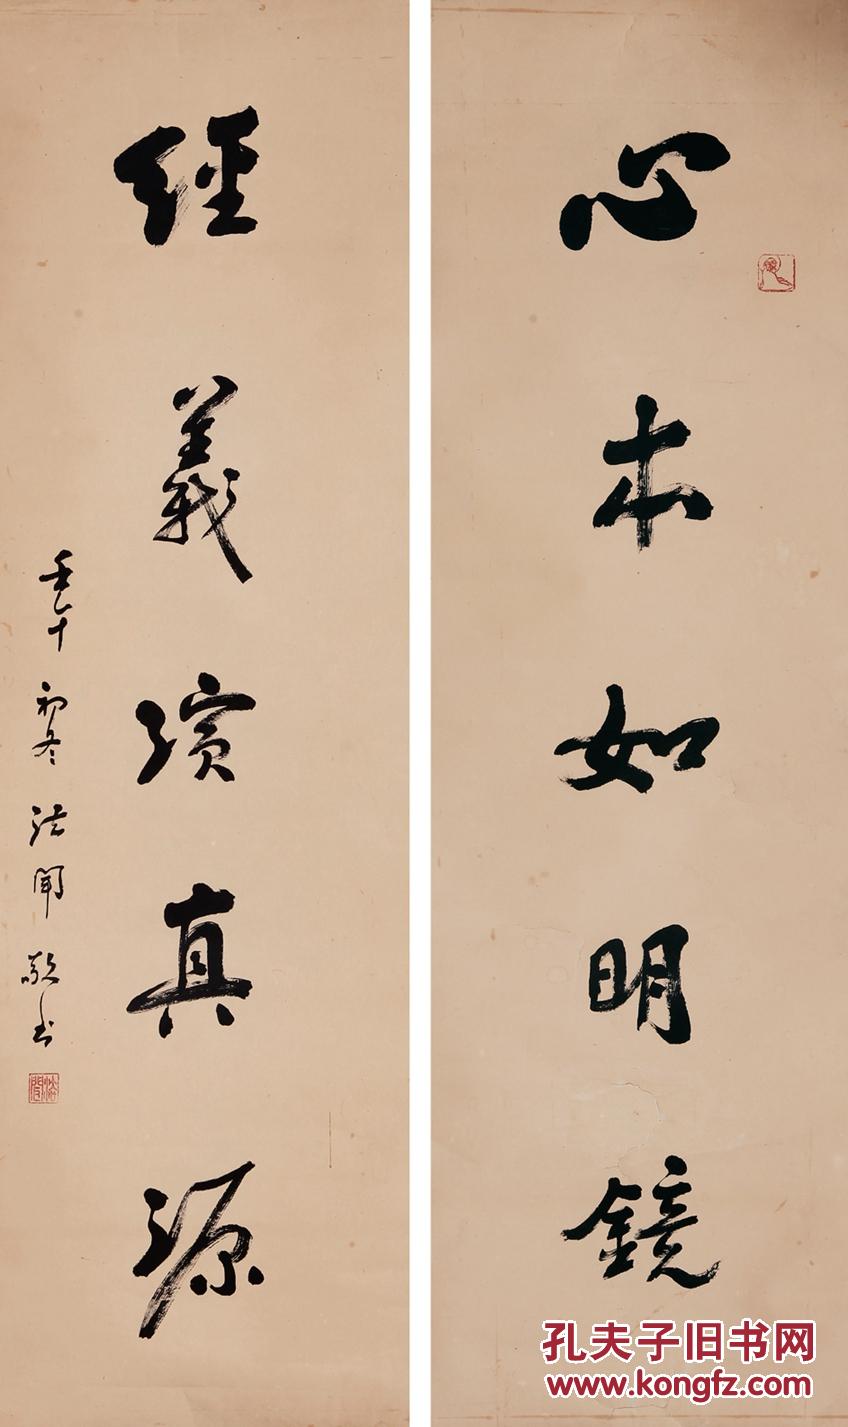 心本如明鏡
經義演真源
壬午初冬法聞敬书
孔夫子旧书网
www.kongfz.com